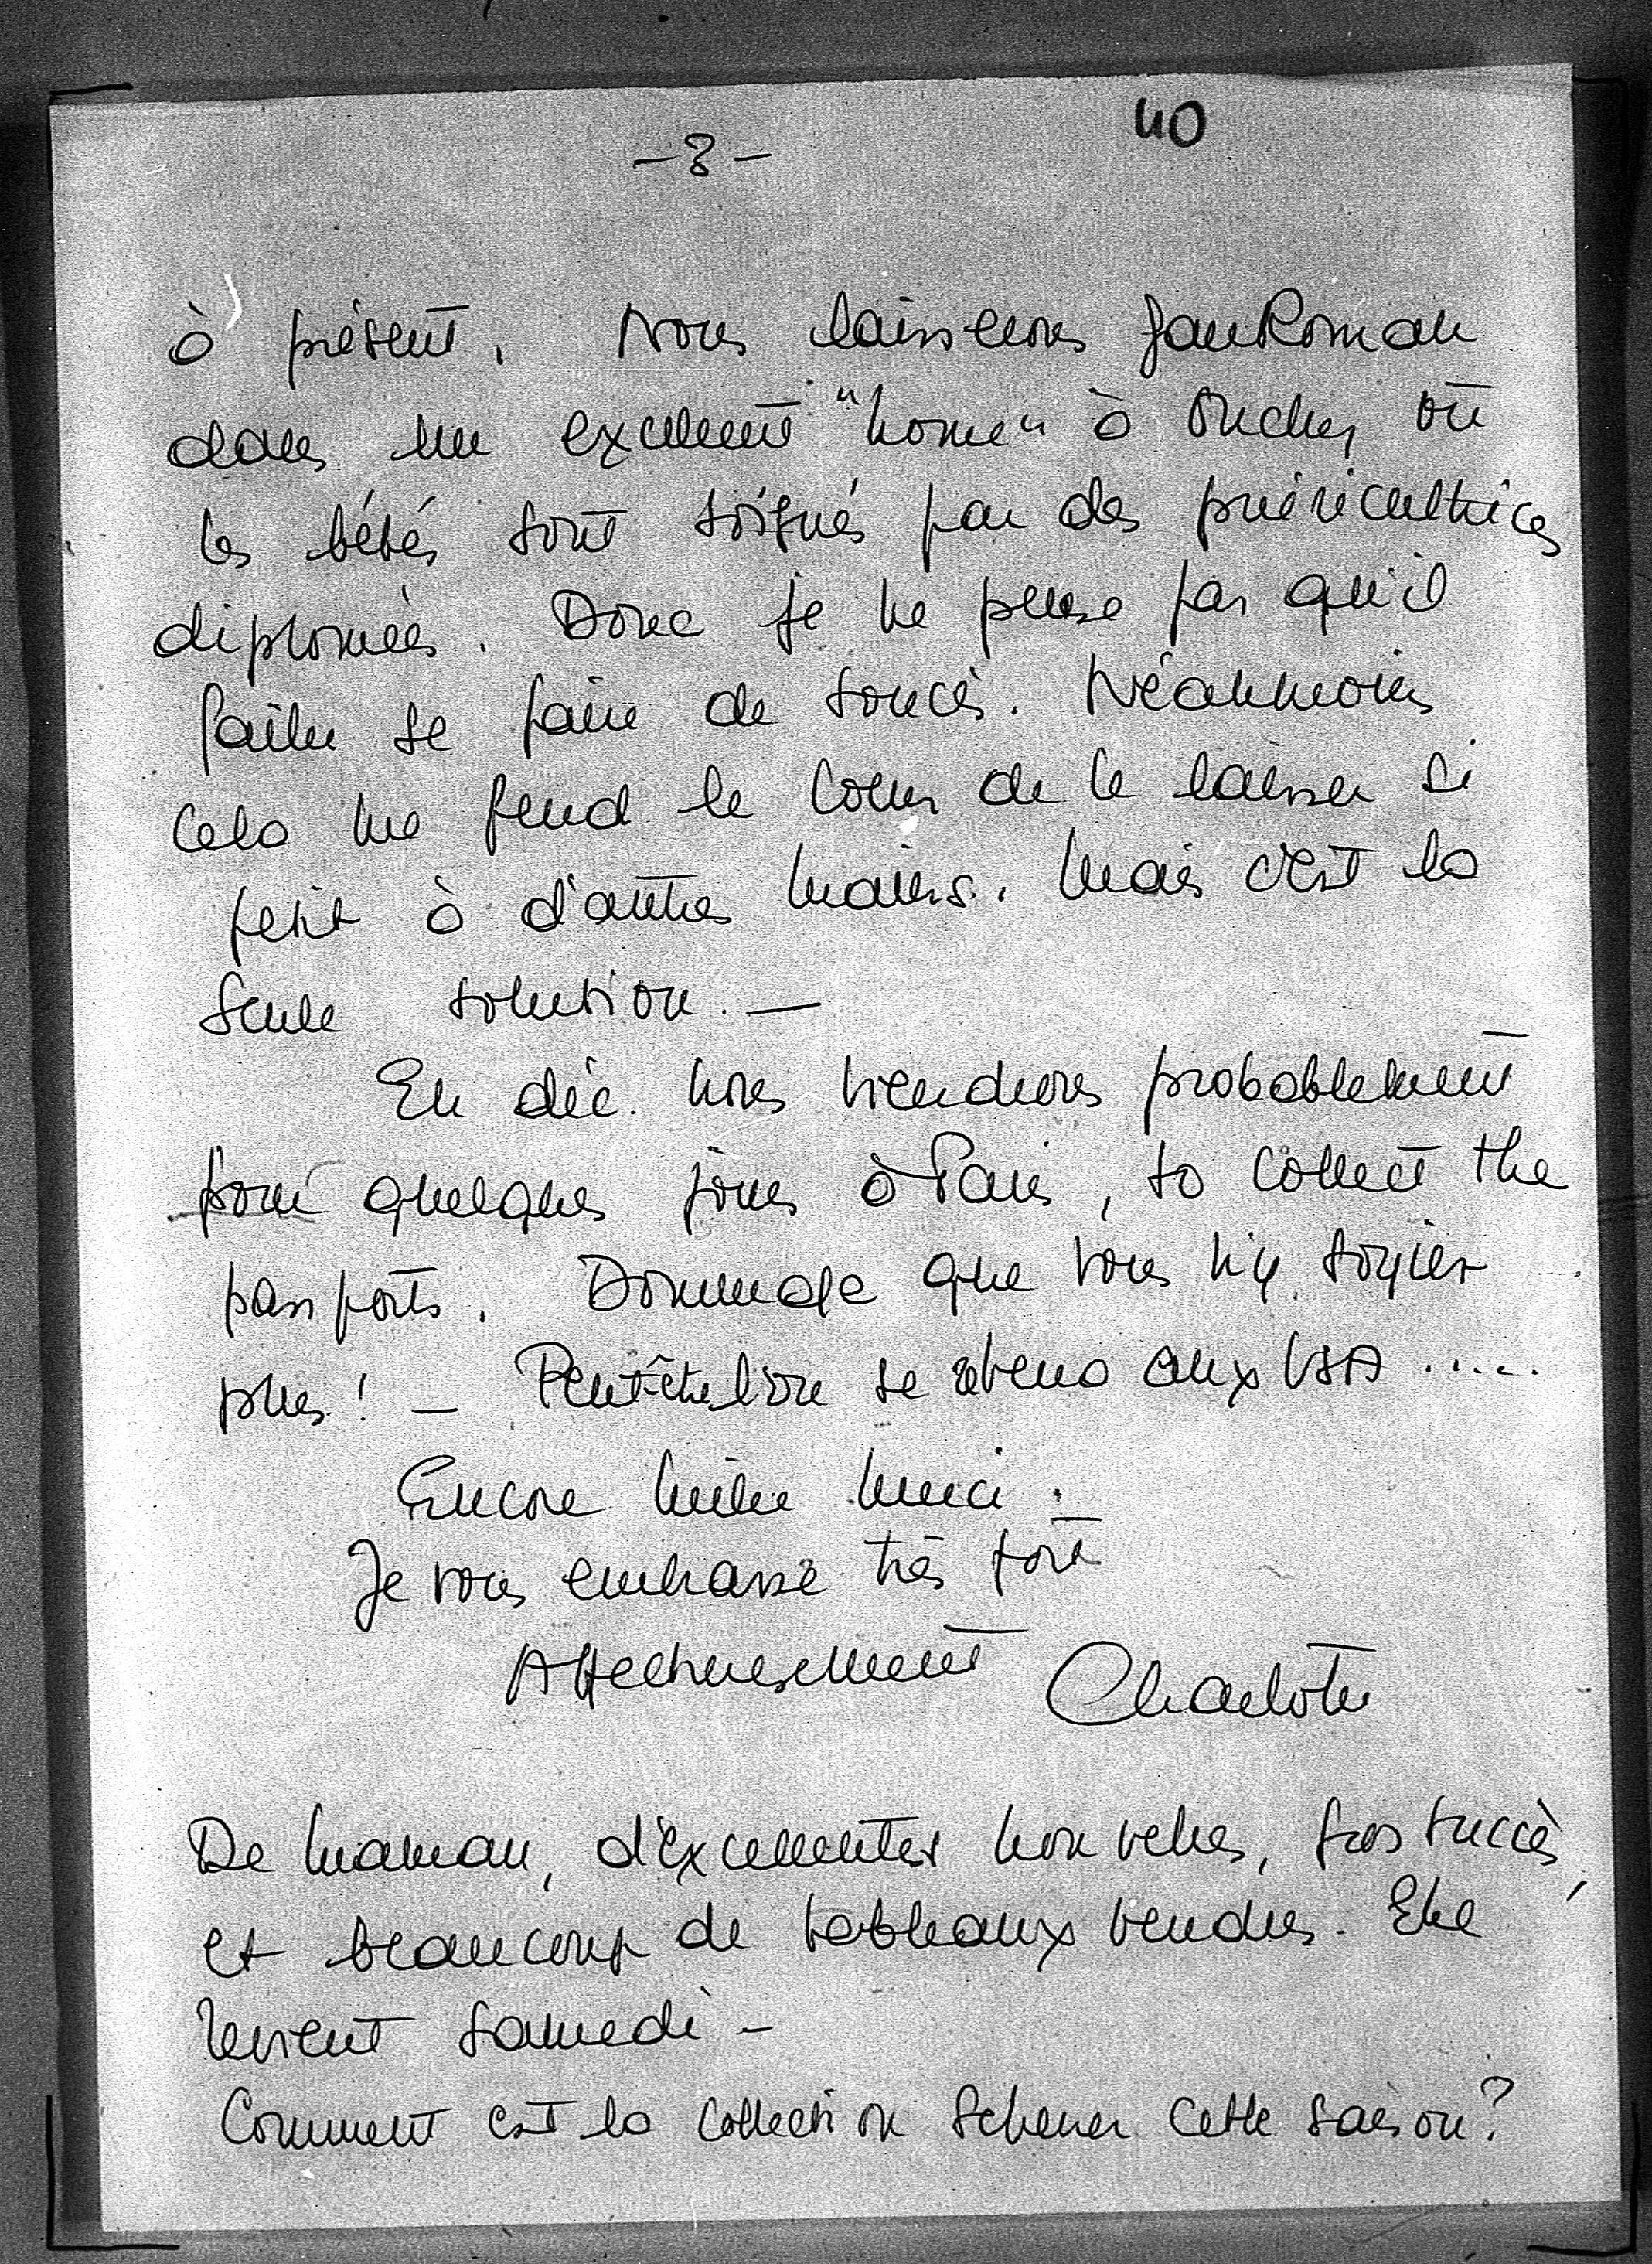 40
-8-
à présent. Nous laisserons JanRoman
dans un excellent "home" à Ouchy où
les bébés sont soignés par des puéricultrices
diplomées. Donc je ne pense pas qu'il
faille se faire de soucis. Néanmoins
cela me fend le coeur de le laisser si
petit à d'autres mains. Mais c'est la
seule solution. —
En déc. nous viendrons probablement
pour quelques jours à Paris, to collect the
passports. Dommage que vous n'y soyiez
plus! — Peut-être l'on se reverra aux USA .....
Encore mille merci.
Je vous embrasse très fort
Affectueusement Charlotte
De maman, d'excellentes nouvelles, gros succès,
et beaucoup de tableaux vendus. Elle
revient samedi -
Comment est la collection Scherrer cette saison?